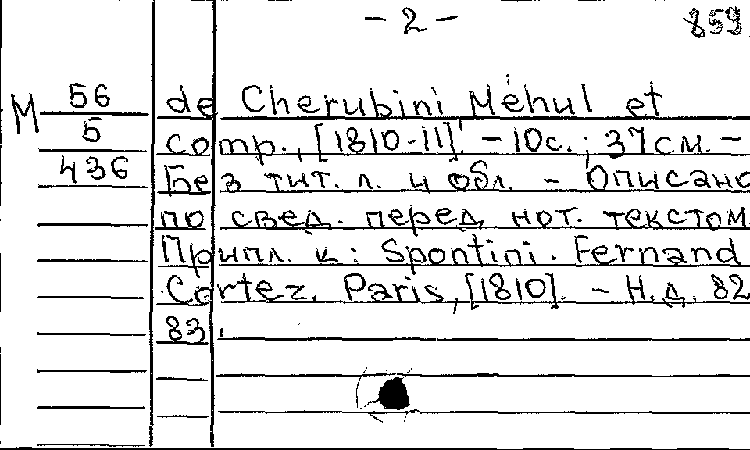 - 2 -
859
M 56
5
436
de Cherubini Méhul et
comp., [1810-11]. - 10с.; 37см. -
Без тит. л. и обл. - Описано
по свед. перед нот. текстом
Припл. к: Spontini. Fernand
Cortez. Paris, [1810]. - Н.д. 82
83.